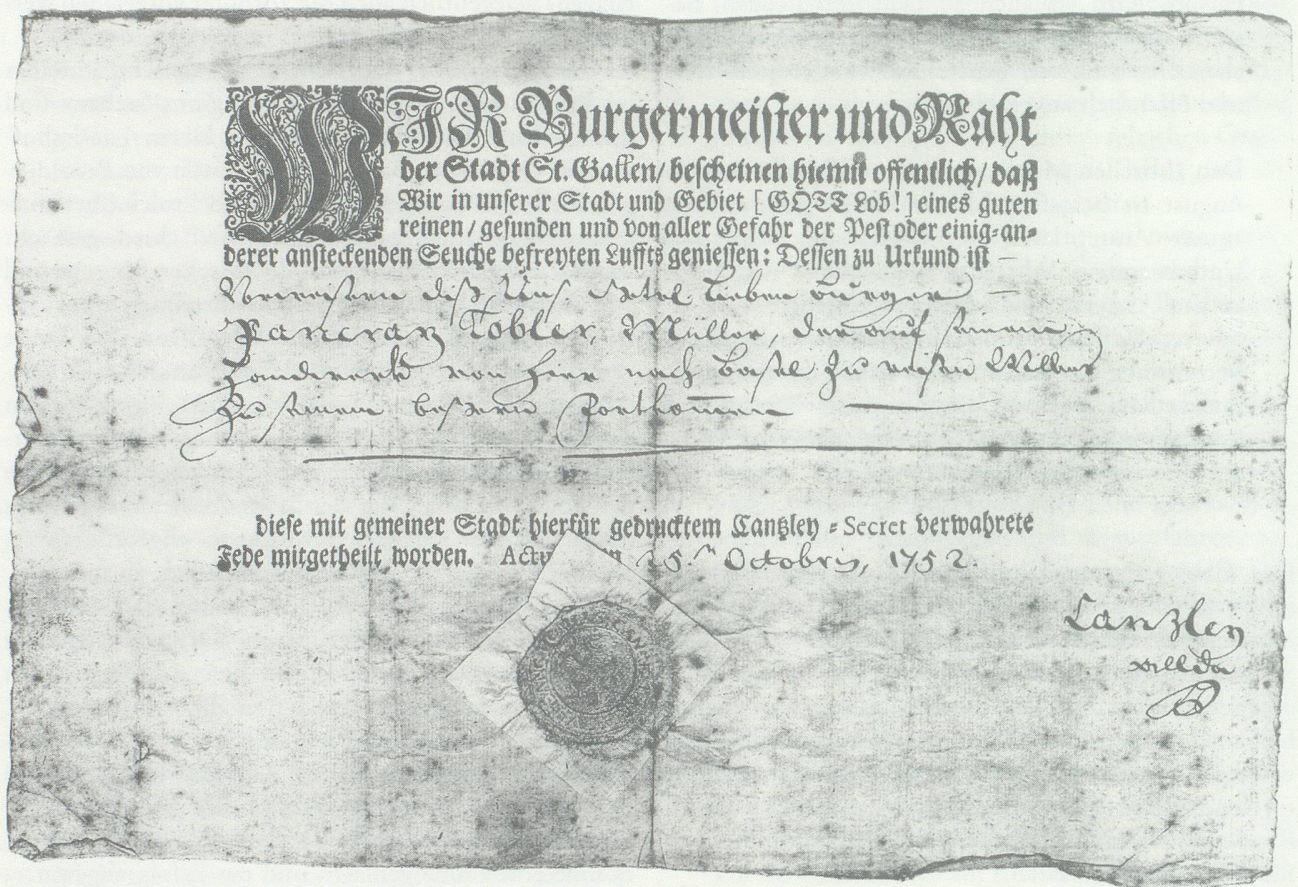 WIR Burgermeister und Raht
der Stadt St. Gallen/ bescheinen hiemit offentlich/ daß
Wir in unserer Stadt und Gebiet [GOTT Lob!] eines guten
reinen/ gesunden und von aller Gefahr der Pest oder einig-an-
derer ansteckenden Seuche befreyten Luffts geniessen: Dessen zu Urkund ist
diß Lieben Burger
Pancraz Tobler, Müller, der auf seinem
von hier nach Basel zu reisen Willens
Zu seinem bessern Fortkom̄en
diese mit gemeiner Stadt hierfür gedrucktem Cantzley - Secret verwahrete
Fede mitgetheilt worden. 5.ten Octobris, 1752.
Canzley